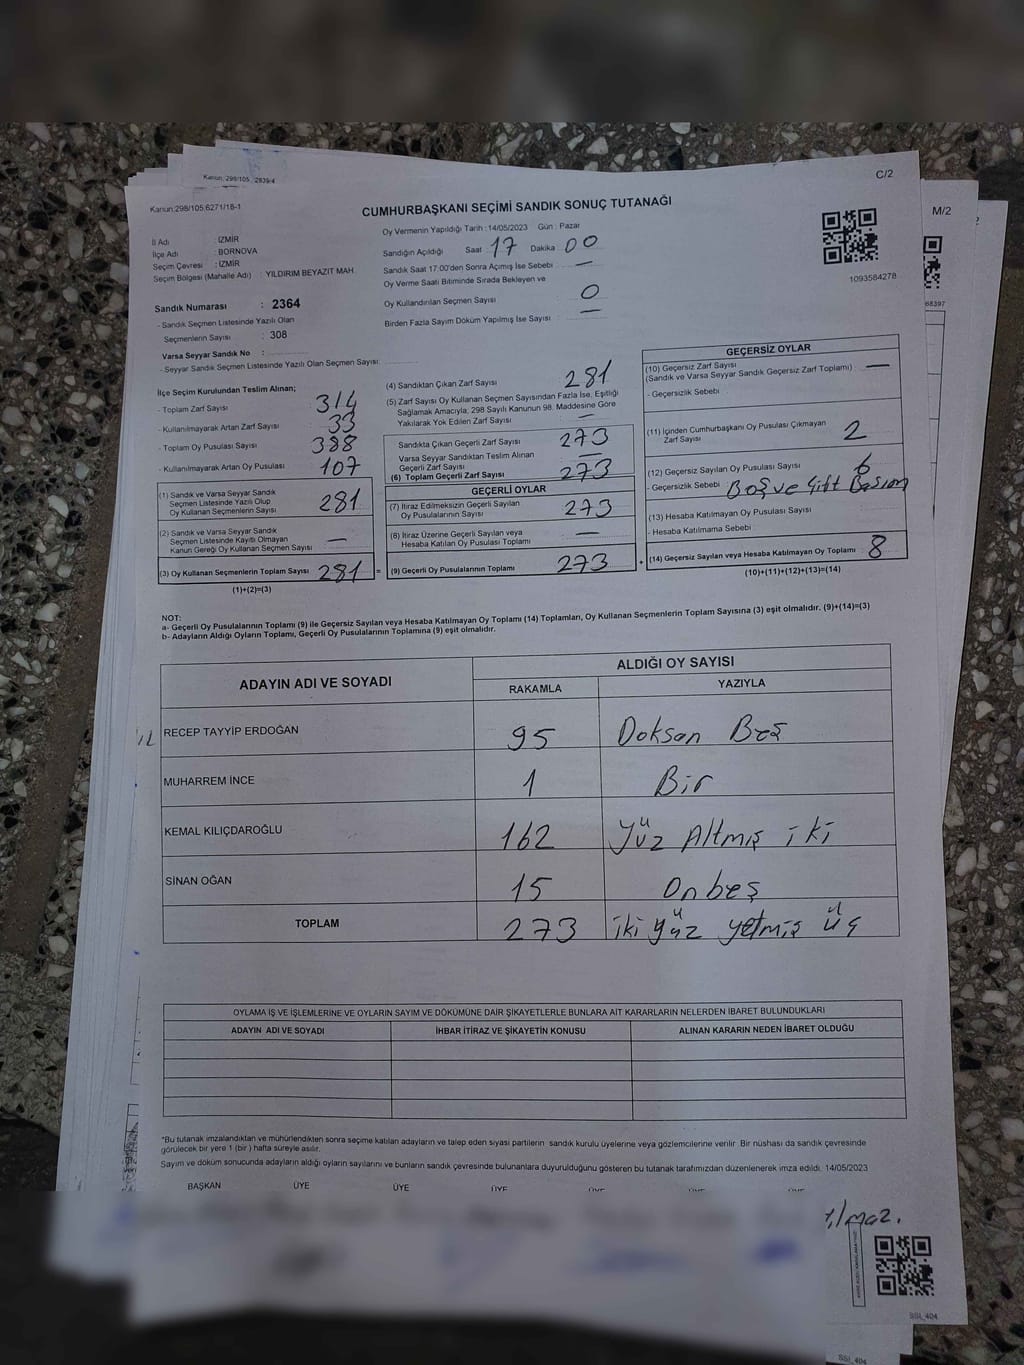 Kanun; 298/105, 2839/4
C/2
M/2
Kanun;298/105,6271/18-1
CUMHURBAŞKANI SEÇİMİ SANDIK SONUÇ TUTANAĞI
İl Adı : İZMİR
İlçe Adı : BORNOVA
Seçim Çevresi : İZMİR
Seçim Bölgesi (Mahalle Adı) : YILDIRIM BEYAZIT MAH.
Sandık Numarası : 2364
- Sandık Seçmen Listesinde Yazılı Olan
Seçmenlerin Sayısı : 308
Varsa Seyyar Sandık No :
- Seyyar Sandık Seçmen Listesinde Yazılı Olan Seçmen Sayısı:
Oy Vermenin Yapıldığı Tarih : 14/05/2023 Gün : Pazar
Sandığın Açıldığı Saat 17 Dakika 00
Sandık Saat 17.00'den Sonra Açımış İse Sebebi —
Oy Verme Saati Bitiminde Sırada Bekleyen ve
Oy Kullandırılan Seçmen Sayısı 0
Birden Fazla Sayım Döküm Yapılmış İse Sayısı —
1093584278
68397
İlçe Seçim Kurulundan Teslim Alınan;
- Toplam Zarf Sayısı 314
- Kullanılmayarak Artan Zarf Sayısı 33
- Toplam Oy Pusulası Sayısı 388
- Kullanılmayarak Artan Oy Pusulası 107
(1) Sandık ve Varsa Seyyar Sandık
Seçmen Listesinde Yazılı Olup
Oy Kullanan Seçmenlerin Sayısı 281
(2) Sandık ve Varsa Seyyar Sandık
Seçmen Listesinde Kayıtlı Olmayan
Kanun Gereği Oy Kullanan Seçmen Sayısı —
(3) Oy Kullanan Seçmenlerin Toplam Sayısı 281
(1)+(2)=(3)
=
(4) Sandıktan Çıkan Zarf Sayısı 281
(5) Zarf Sayısı Oy Kullanan Seçmen Sayısından Fazla İse, Eşitliği
Sağlamak Amacıyla, 298 Sayılı Kanunun 98. Maddesine Göre
Yakılarak Yok Edilen Zarf Sayısı —
Sandıkta Çıkan Geçerli Zarf Sayısı 273
Varsa Seyyar Sandıktan Teslim Alınan
Geçerli Zarf Sayısı —
(6) Toplam Geçerli Zarf Sayısı 273
GEÇERLİ OYLAR
(7) İtiraz Edilmeksizin Geçerli Sayılan
Oy Pusulalarının Sayısı 273
(8) İtiraz Üzerine Geçerli Sayılan veya
Hesaba Katılan Oy Pusulası Toplamı —
(9) Geçerli Oy Pusulalarının Toplamı 273
+
GEÇERSİZ OYLAR
(10) Geçersiz Zarf Sayısı
(Sandık ve Varsa Seyyar Sandık Geçersiz Zarf Toplamı) —
- Geçersizlik Sebebi
(11) İçinden Cumhurbaşkanı Oy Pusulası Çıkmayan
Zarf Sayısı 2
(12) Geçersiz Sayılan Oy Pusulası Sayısı 6
- Geçersizlik Sebebi Boş ve Çift Basım
(13) Hesaba Katılmayan Oy Pusulası Sayısı
- Hesaba Katılmama Sebebi
(14) Geçersiz Sayılan veya Hesaba Katılmayan Oy Toplamı 8
(10)+(11)+(12)+(13)=(14)
NOT:
a- Geçerli Oy Pusulalarının Toplamı (9) ile Geçersiz Sayılan veya Hesaba Katılmayan Oy Toplamı (14) Toplamları, Oy Kullanan Seçmenlerin Toplam Sayısına (3) eşit olmalıdır. (9)+(14)=(3)
b- Adayların Aldığı Oyların Toplamı, Geçerli Oy Pusulalarının Toplamına (9) eşit olmalıdır.
ADAYIN ADI VE SOYADI
ALDIĞI OY SAYISI
RAKAMLA YAZIYLA
RECEP TAYYİP ERDOĞAN 95 Doksan Beş
MUHARREM İNCE 1 Bir
KEMAL KILIÇDAROĞLU 162 Yüz Altmış iki
SİNAN OĞAN 15 Onbeş
TOPLAM 273 iki yüz yetmiş üç
OYLAMA İŞ VE İŞLEMLERİNE VE OYLARIN SAYIM VE DÖKÜMÜNE DAİR ŞİKAYETLERLE BUNLARA AİT KARARLARIN NELERDEN İBARET BULUNDUKLARI
ADAYIN ADI VE SOYADI İHBAR İTİRAZ VE ŞİKAYETİN KONUSU ALINAN KARARIN NEDEN İBARET OLDUĞU
*Bu tutanak imzalandıktan ve mühürlendikten sonra seçime katılan adayların ve talep eden siyasi partilerin sandık kurulu üyelerine veya gözlemcilerine verilir. Bir nüshası da sandık çevresinde
görülecek bir yere 1 (bir) hafta süreyle asılır.
Sayım ve döküm sonucunda adayların aldığı oyların sayılarını ve bunların sandık çevresinde bulunanlara duyurulduğunu gösteren bu tutanak tarafımızdan düzenlenerek imza edildi. 14/05/2023
BAŞKAN ÜYE ÜYE ÜYE ÜYE ÜYE ÜYE
SSI_404
SSI_404